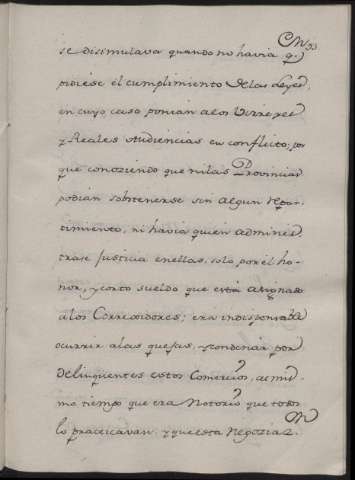 se disimulava quando no havia q.
pidiese el cumplimiento de las Leyes,
en cuyo caso ponian a los Virreyes
y Reales Audiencias en conflicto; por
que conoziendo que ni las Provincias
podian sobtenerse sin algun repar-
timiento, ni havia quien adminis
trase Justicia en ellas, solo por el ho-
nor, y corto sueldo que está asignado
a los Corregidores; era indispensable
ocurrir a las quejas, y condenar por
delinquentes estos Comercios, al mis
mo tiempo que era Notorio que todos
lo practicavan y que esta Negozia